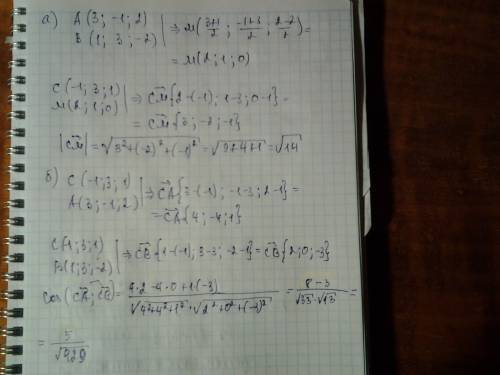 а) A(3; -1; 2)
B(1; 3; -2) | ⇒ M(3+1/2; -1+3/2; 2-2/2) =
= M(2; 1; 0)
C(-1; 3; 1)
M(2; 1; 0) | ⇒ CM{2-(-1); 1-3; 0-1} =
= CM{3; -2; -1}
|CM| = √3²+(-2)²+(-1)² = √9+4+1 = √14
б) C(-1; 3; 1)
A(3; -1; 2) | ⇒ CA{3-(-1); -1-3; 2-1} =
= CA{4; -4; 1}
C(-1; 3; 1)
B(1; 3; -2) | ⇒ CB{1-(-1); 3-3; -2-1} = CB{2; 0; -3}
cos(CA; CB) = 4·2-4·0+1·(-3)/√4²+4²+1² · √2²+0²+(-3)² = 8-3/√33·√13 =
= 5/√429